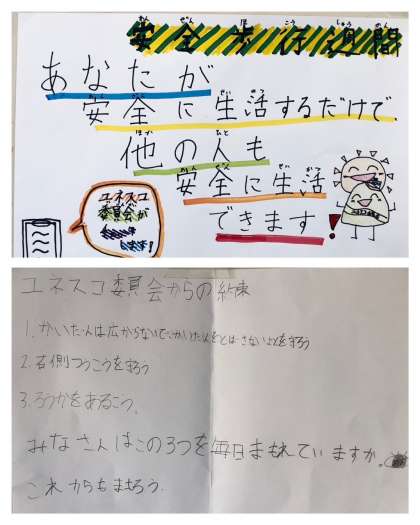 安全歩行週間
あなたが
安全に生活するだけで、
他の人も
安全に生活
できます!
ユネスコ
委員会が
ユネスコ委員会からの約束
1.かいだん人は広がらない
2.右側つうこうを守ろう
3.ろうかをあるこう。
みなさんはこの3つを毎日まもれていますか。
これからもまもろう。